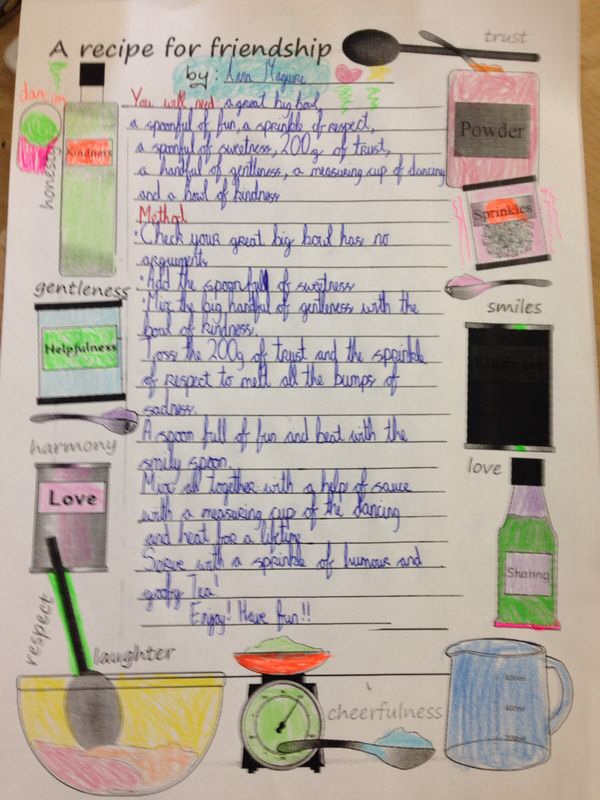 A recipe for friendship
trust
by: Ann Maguire
You will need: a great big bowl,
a spoonful of fun, a sprinkle of respect,
a spoonful of sweetness, 200g of trust,
a handful of gentleness, a measuring cup of dancing
and a bowl of kindness
Method
• Check your great big bowl has no
arguments
• Add the spoonfull of sweetness
• Mix the big handful of gentleness with the
bowl of kindness.
Toss the 200g of trust and the sprinkle
of respect to melt all the bumps of
sadness.
A spoon full of fun and beat with the
smily spoon.
Mix all together with a help of sauce
with a measuring cup of the dancing
and heat for a lifetime
Serve with a sprinkle of humour and
goofy Tea!
Enjoy! Have fun!!
Kindness
honesty
gentleness
Helpfulness
harmony
Love
respect
laughter
Powder
Sprinkles
smiles
Kindness
love
Sharing
cheerfulness
600ml
400ml
200ml